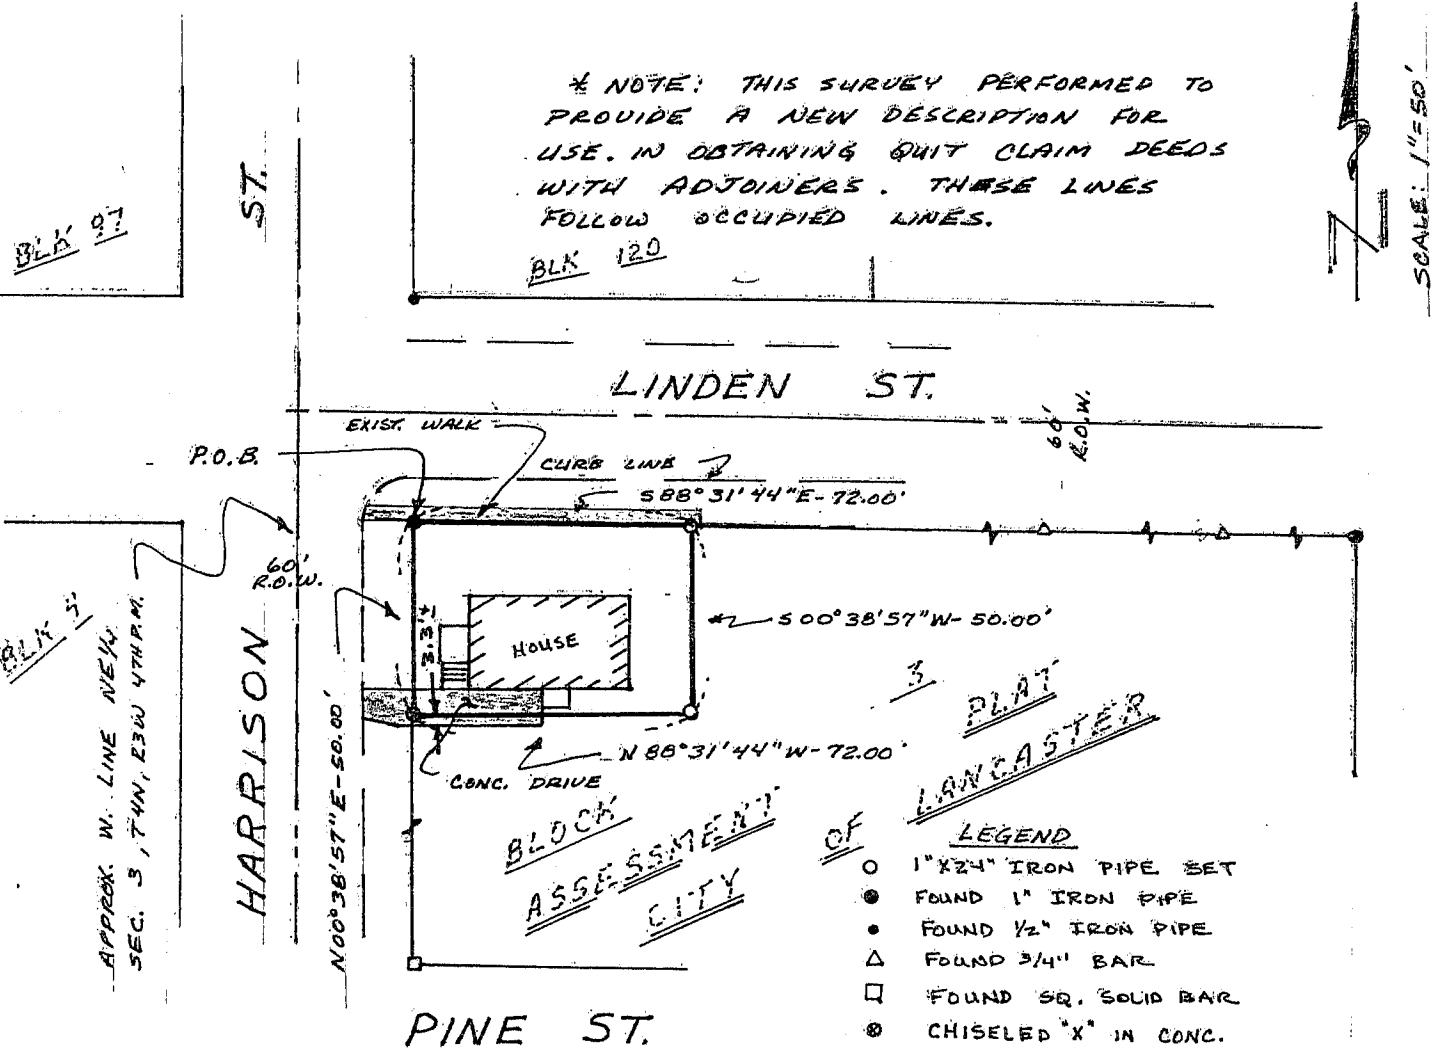 * NOTE: THIS SURVEY PERFORMED TO
PROVIDE A NEW DESCRIPTION FOR
USE. IN OBTAINING QUIT CLAIM DEEDS
WITH ADJOINERS. THESE LINES
FOLLOW OCCUPIED LINES.
SCALE: 1"=50'
BLK 97
ST.
BLK 120
LINDEN ST.
60'
R.O.W.
EXIST. WALK
P.O.B.
CURB LINE
S 88°31'44"E-72.00'
60'
R.O.W.
BLK
APPROX. W. LINE NE 1/4
SEC. 3, T4N, R3W 4TH P.M.
HARRISON
N00°38'57"E-50.00'
3.3'±
HOUSE
S 00°38'57"W-50.00'
N 88°31'44"W-72.00'
CONC. DRIVE
BLOCK 3
ASSESSMENT PLAT
OF
CITY LANCASTER
LEGEND
1"X24" IRON PIPE SET
FOUND 1" IRON PIPE
FOUND 1/2" IRON PIPE
FOUND 3/4" BAR
FOUND SQ. SOLID BAR
CHISELED "X" IN CONC.
PINE ST.